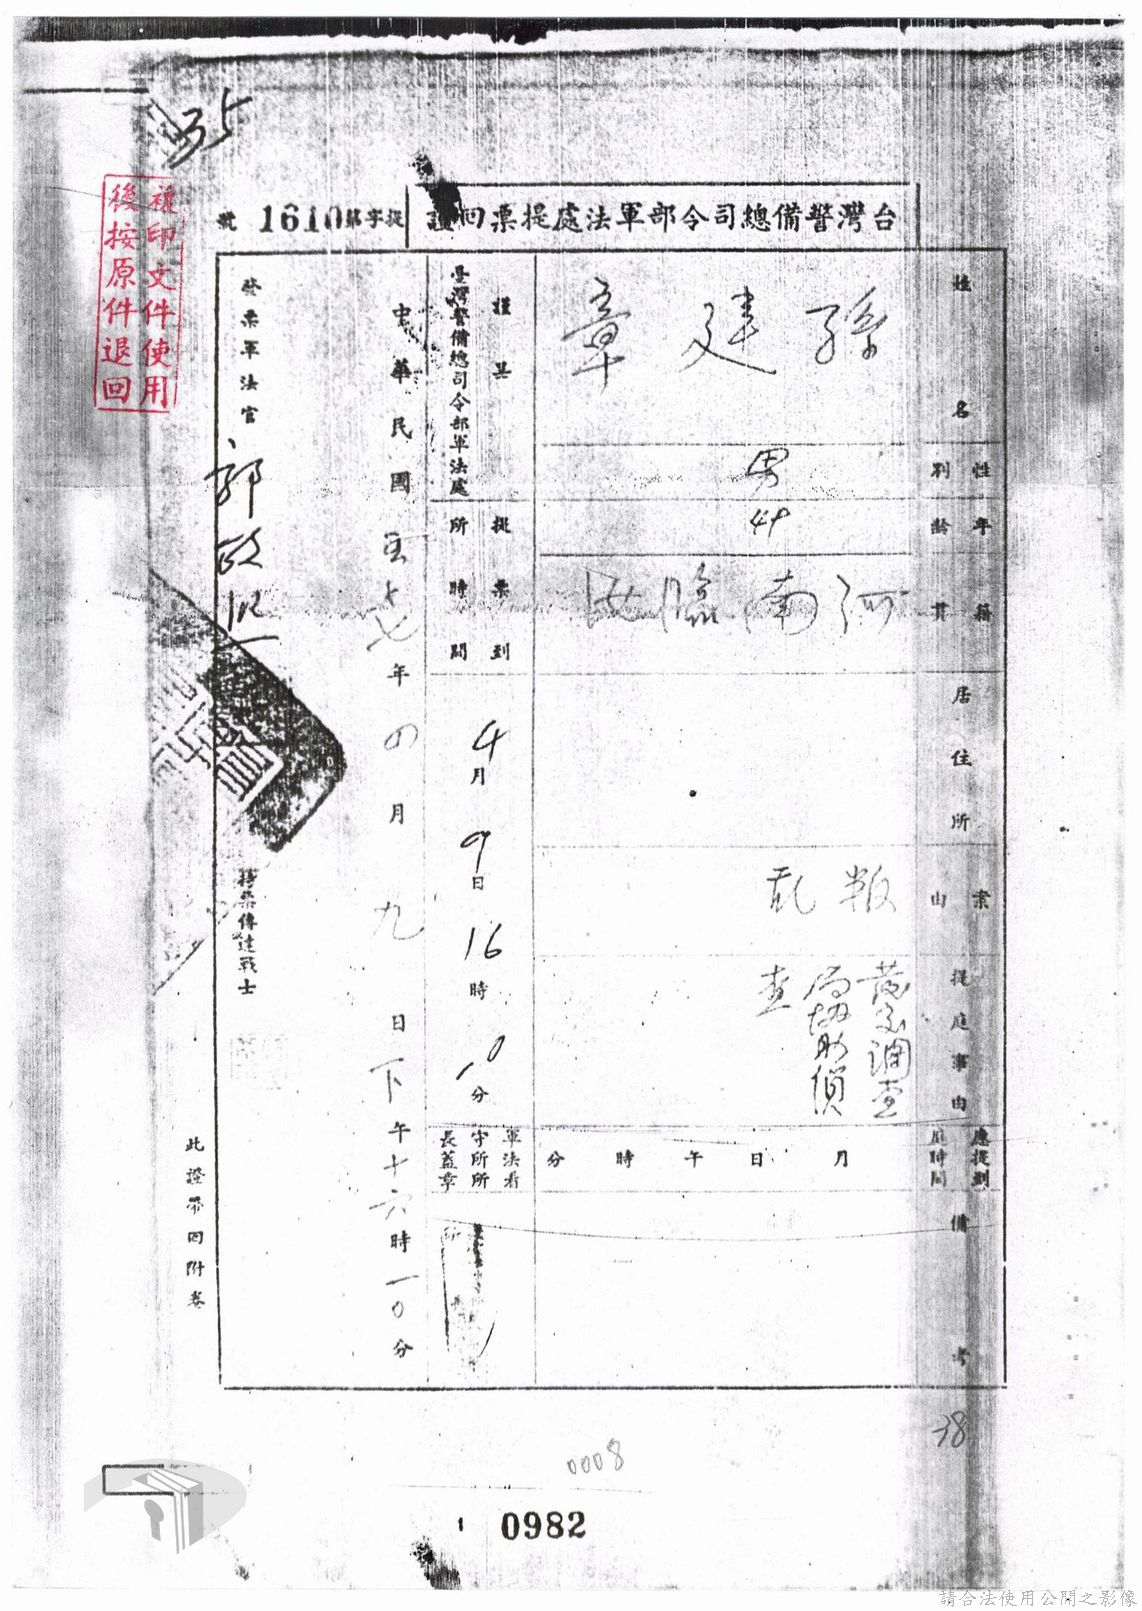 35
複印文件使用
後按原件退回
台灣警備總司令部軍法處提票回證
提字第1610號
姓名
孫建章
性別
男
年齡
44
籍貫
河南臨
居住所
案由
叛乱
提庭事由
調查
局協助偵
查
應提到庭時間
月 日 午 時 分
備考
謹具
臺灣警備總司令部軍法處
提票到所時間
4月9日16時10分
軍法看守所所長蓋章
中華民國五十七年四月九日下午十六時一0分
發票軍法官
郭政熙
持票傳達戰士
此證帶回附卷
38
0008
1 0982
請合法使用公開之影像